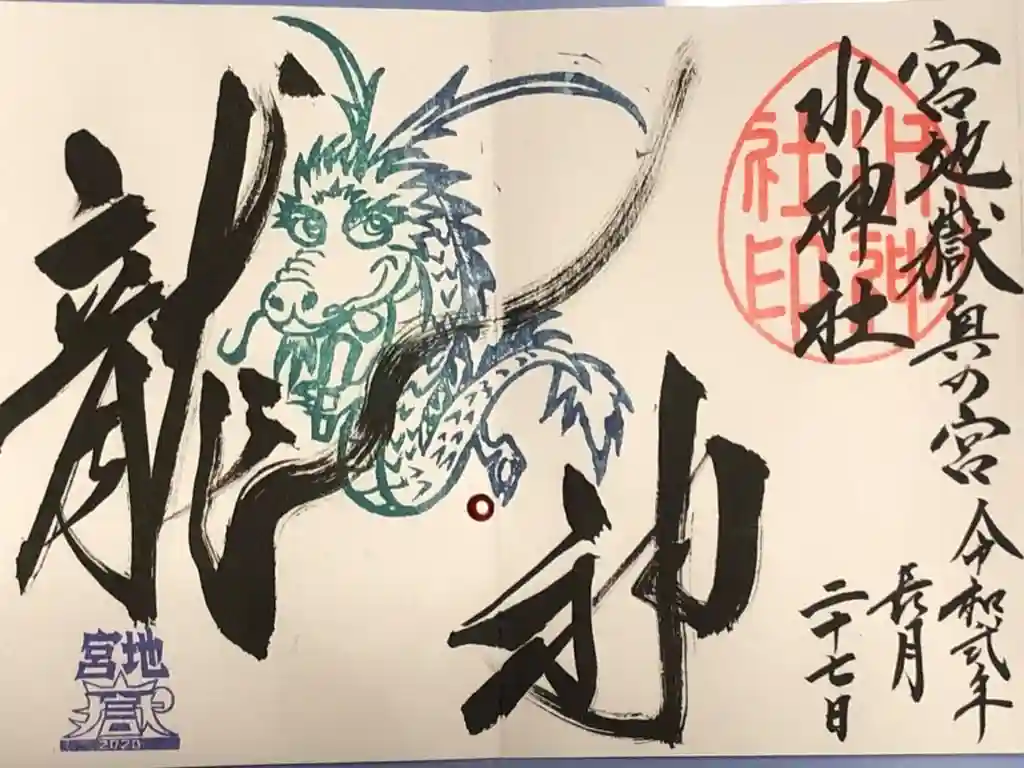 宮地嶽奥の宮
令和弐年
水神社
長月
二十七日
水神
社印
龍神
宮地
嶽
2020